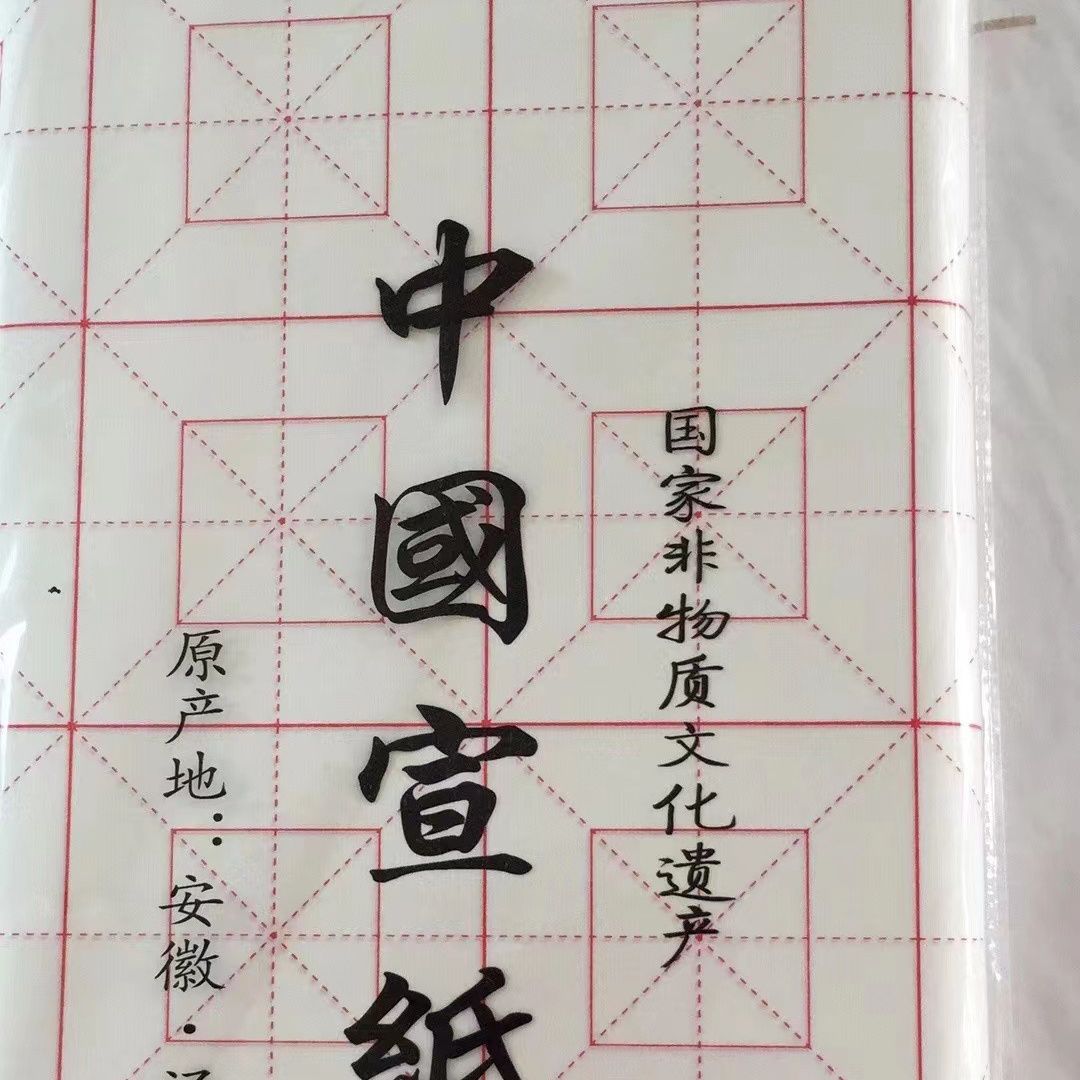 国家非物质文化遗产
中國宣紙
原产地：安徽·